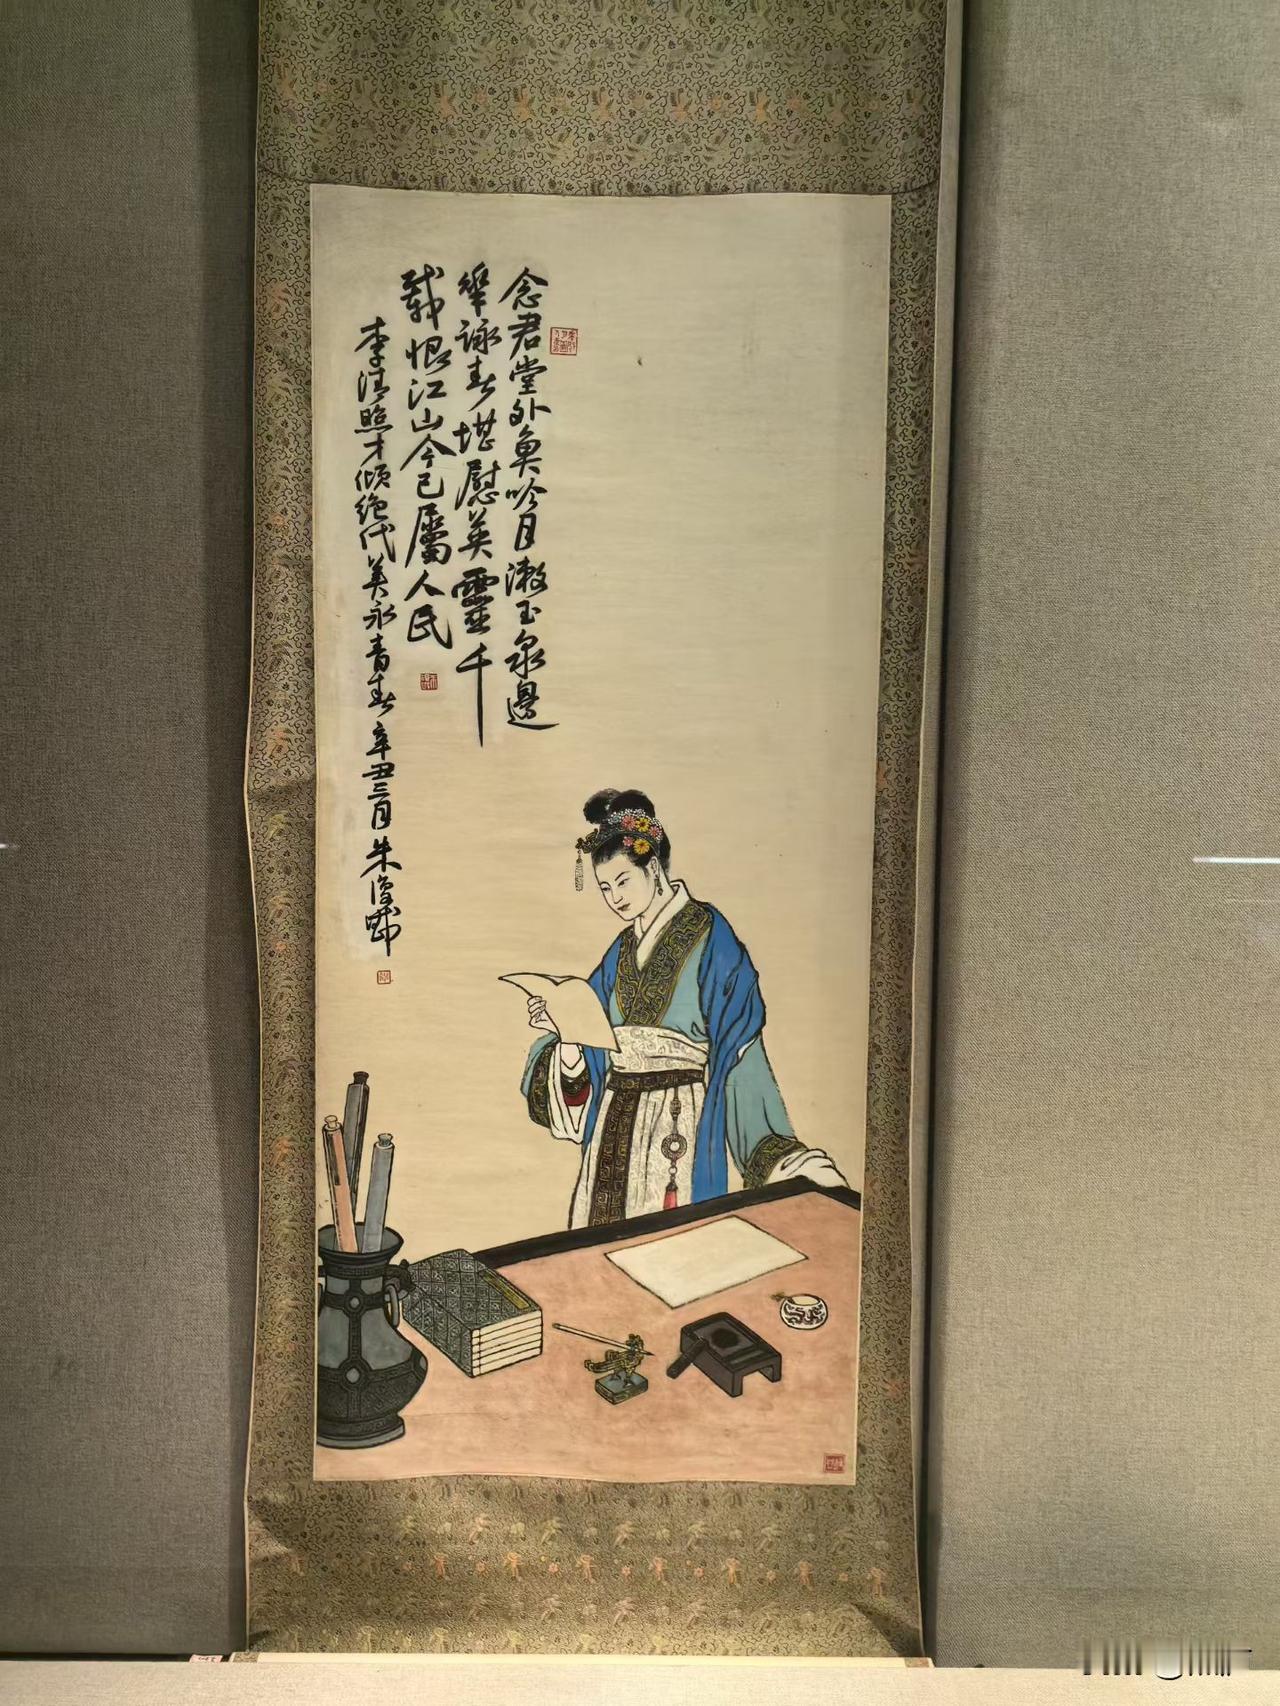 念君堂外吟月漱玉泉邊
詠春堪慰英靈千
載恨江山今已屬人民
李清照才傾絕代美永青春 辛丑三月 朱復戡